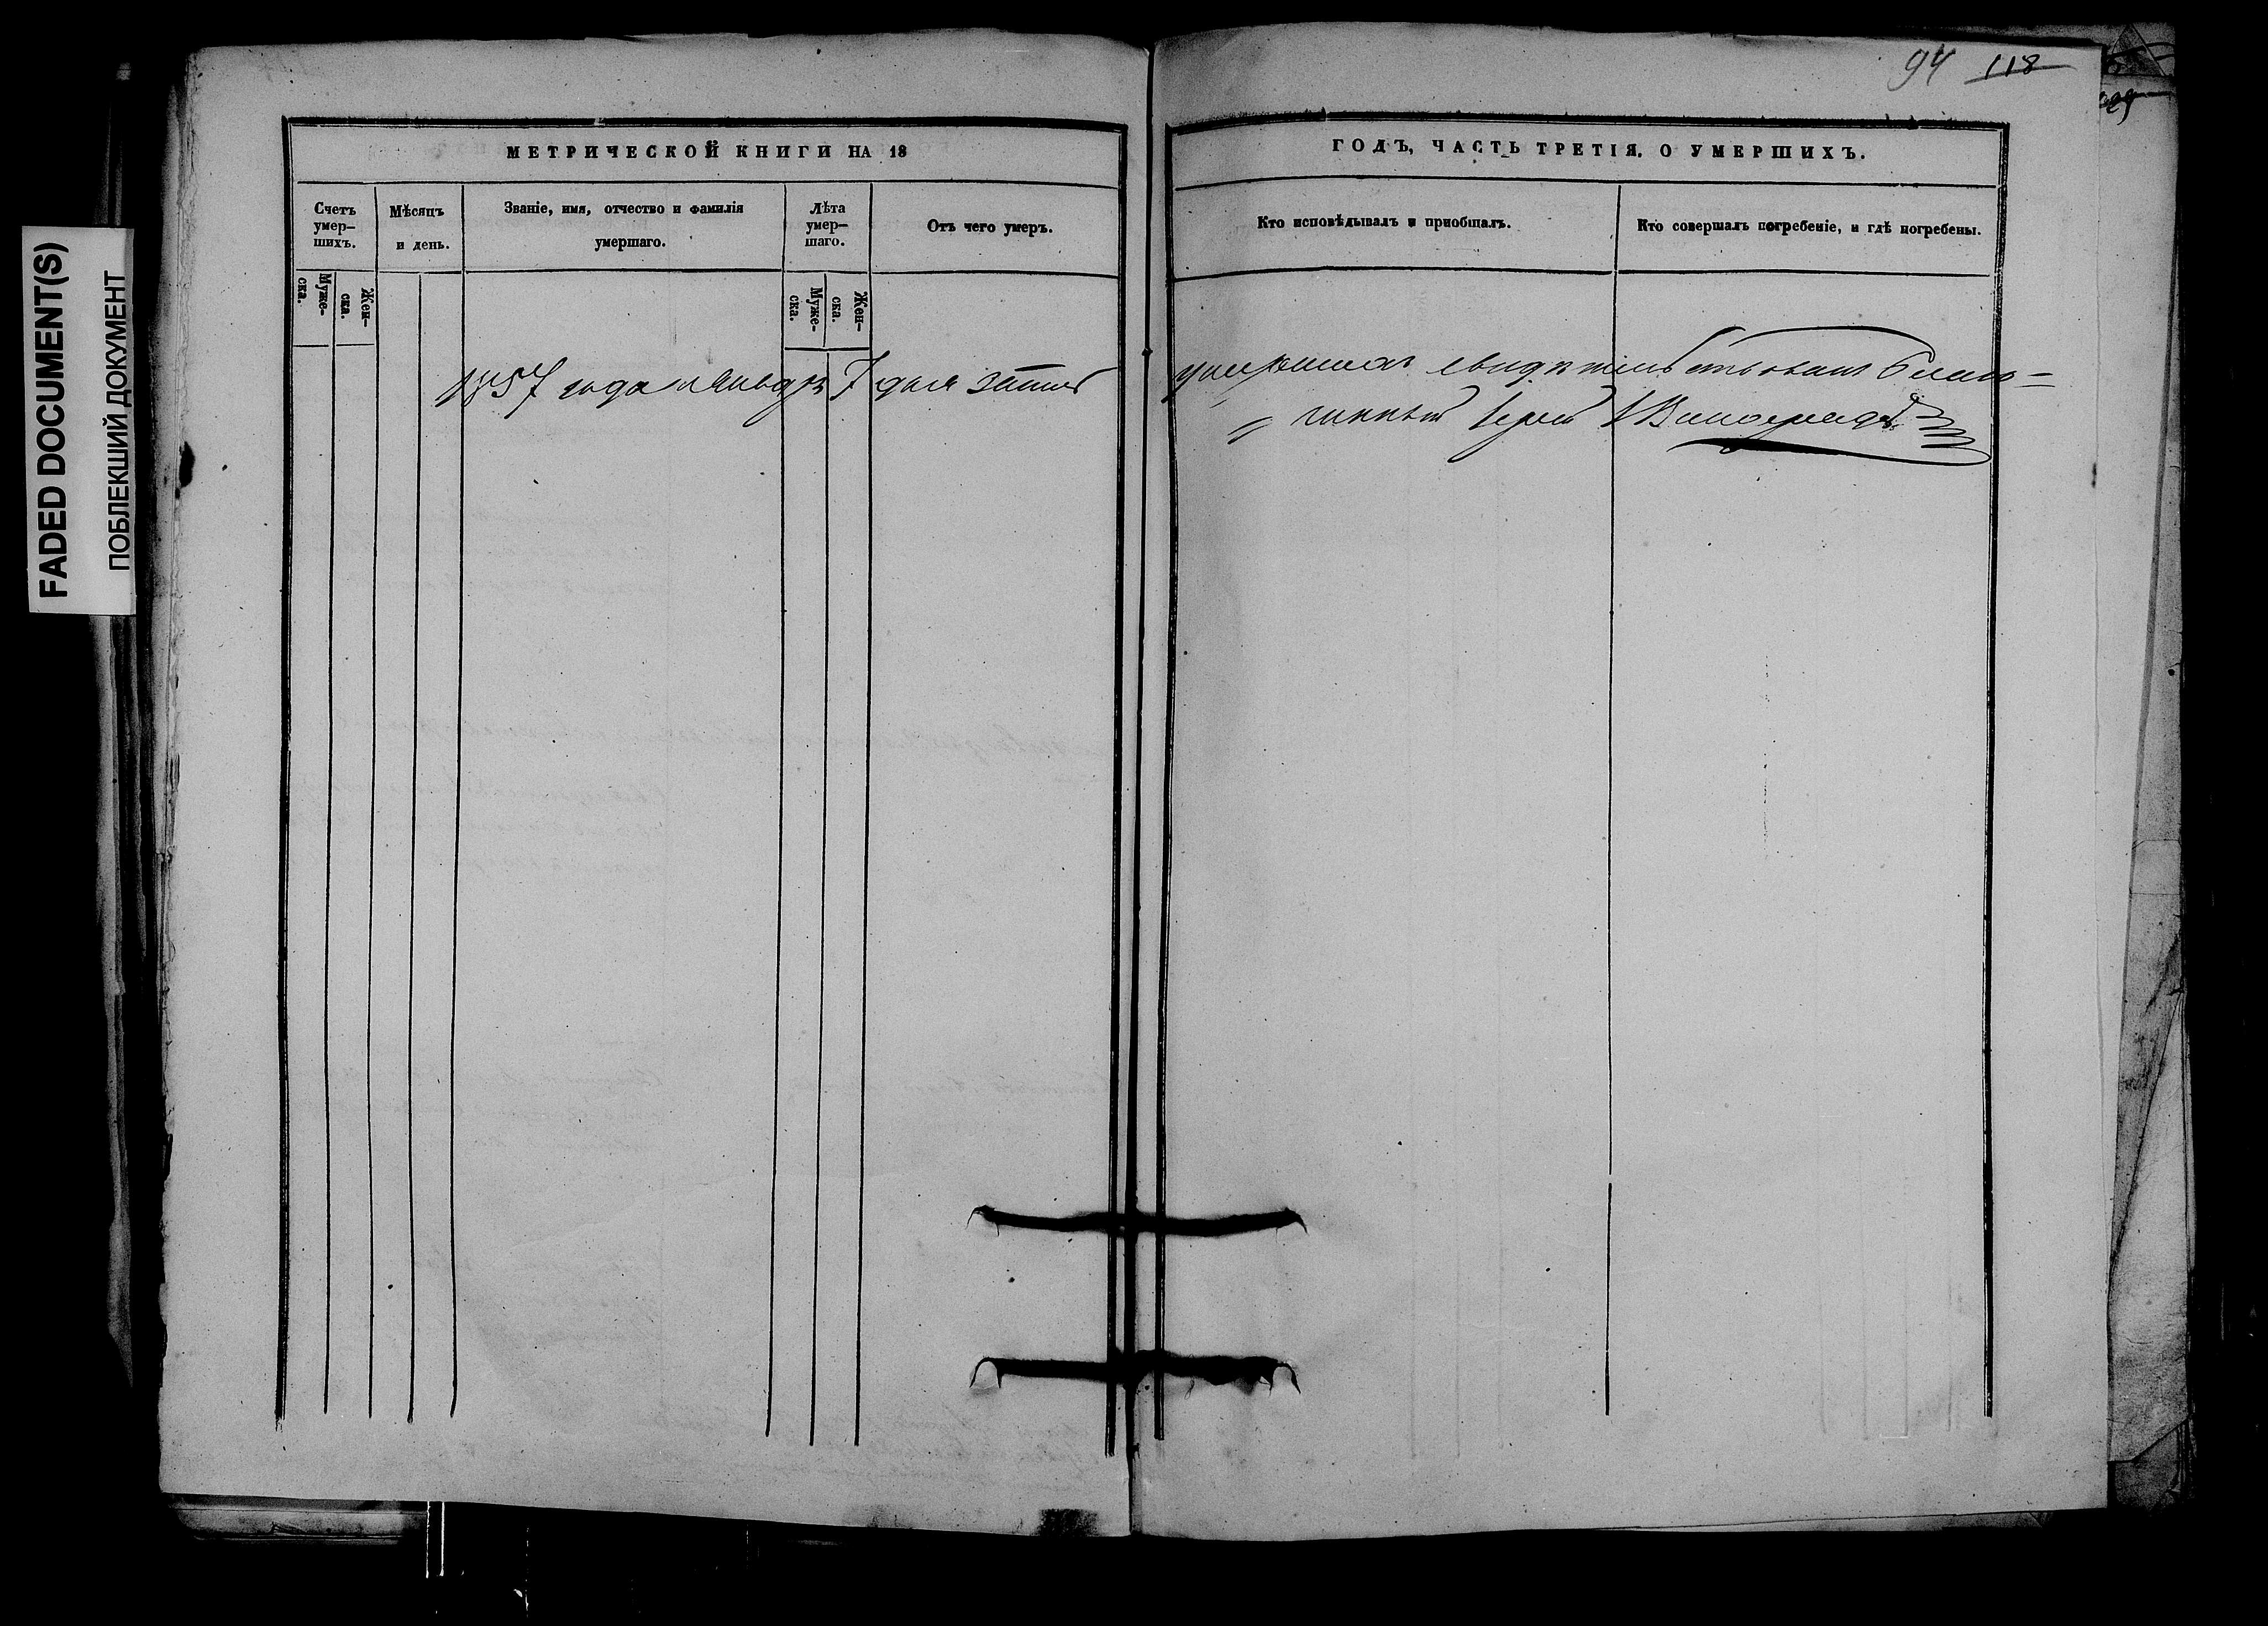 94 118
FADED DOCUMENT(S)
ПОБЛЕКШИЙ ДОКУМЕНТ
МЕТРИЧЕСКОЙ КНИГИ НА 18
Счетъ
умер–
шихъ.
Муже–
ска.
Жен–
ска.
Мѣсяцъ
и день.
Званіе, имя, отчество и фамилія
умершаго.
Лѣта
умер–
шаго.
Муже–
ска.
Жен–
ска.
Отъ чего умеръ.
1857 года Января 7 дня
ГОДЪ, ЧАСТЬ ТРЕТІЯ. О УМЕРШИХЪ.
Кто исповѣдывалъ и пріобщалъ.
Кто совершалъ погребеніе, и гдѣ погребены.
умершихъ свидѣтельствовалъ Благо=
чинный Іерей Виноградовъ